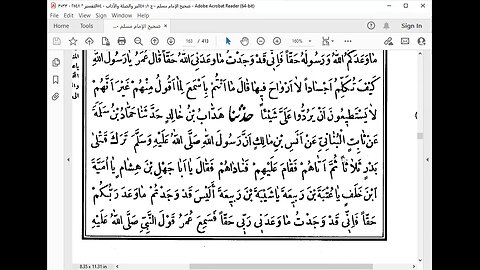 صحيح الإمام مسلم - Adobe Acrobat Reader (64-bit)
161 / 413
مَا وَعَدَكُمُ اللهُ وَرَسُولُهُ حَقًّا فَإِنِّي قَدْ وَجَدْتُ مَا وَعَدَنِيَ اللهُ حَقًّا قَالَ عُمَرُ يَا رَسُولَ اللهِ
كَيْفَ تُكَلِّمُ أَجْسَادًا لَا أَرْوَاحَ فِيهَا قَالَ مَا أَنْتُمْ بِأَسْمَعَ لِمَا أَقُولُ مِنْهُمْ غَيْرَ أَنَّهُمْ
لَا يَسْتَطِيعُونَ أَنْ يَرُدُّوا عَلَيَّ شَيْئًا حَدَّثَنَا هَدَّابُ بْنُ خَالِدٍ حَدَّثَنَا حَمَّادُ بْنُ سَلَمَةَ
عَنْ ثَابِتٍ الْبُنَانِيِّ عَنْ أَنَسِ بْنِ مَالِكٍ أَنَّ رَسُولَ اللهِ صَلَّى اللهُ عَلَيْهِ وَسَلَّمَ تَرَكَ قَتْلَى
بَدْرٍ ثَلَاثًا ثُمَّ أَتَاهُمْ فَقَامَ عَلَيْهِمْ فَنَادَاهُمْ فَقَالَ يَا أَبَا جَهْلِ بْنَ هِشَامٍ يَا أُمَيَّةَ
ابْنَ خَلَفٍ يَا عُتْبَةَ بْنَ رَبِيعَةَ يَا شَيْبَةَ بْنَ رَبِيعَةَ أَلَيْسَ قَدْ وَجَدْتُمْ مَا وَعَدَ رَبُّكُمْ
حَقًّا فَإِنِّي قَدْ وَجَدْتُ مَا وَعَدَنِي رَبِّي حَقًّا فَسَمِعَ عُمَرُ قَوْلَ النَّبِيِّ صَلَّى اللهُ عَلَيْهِ
8.35 x 11.31 in